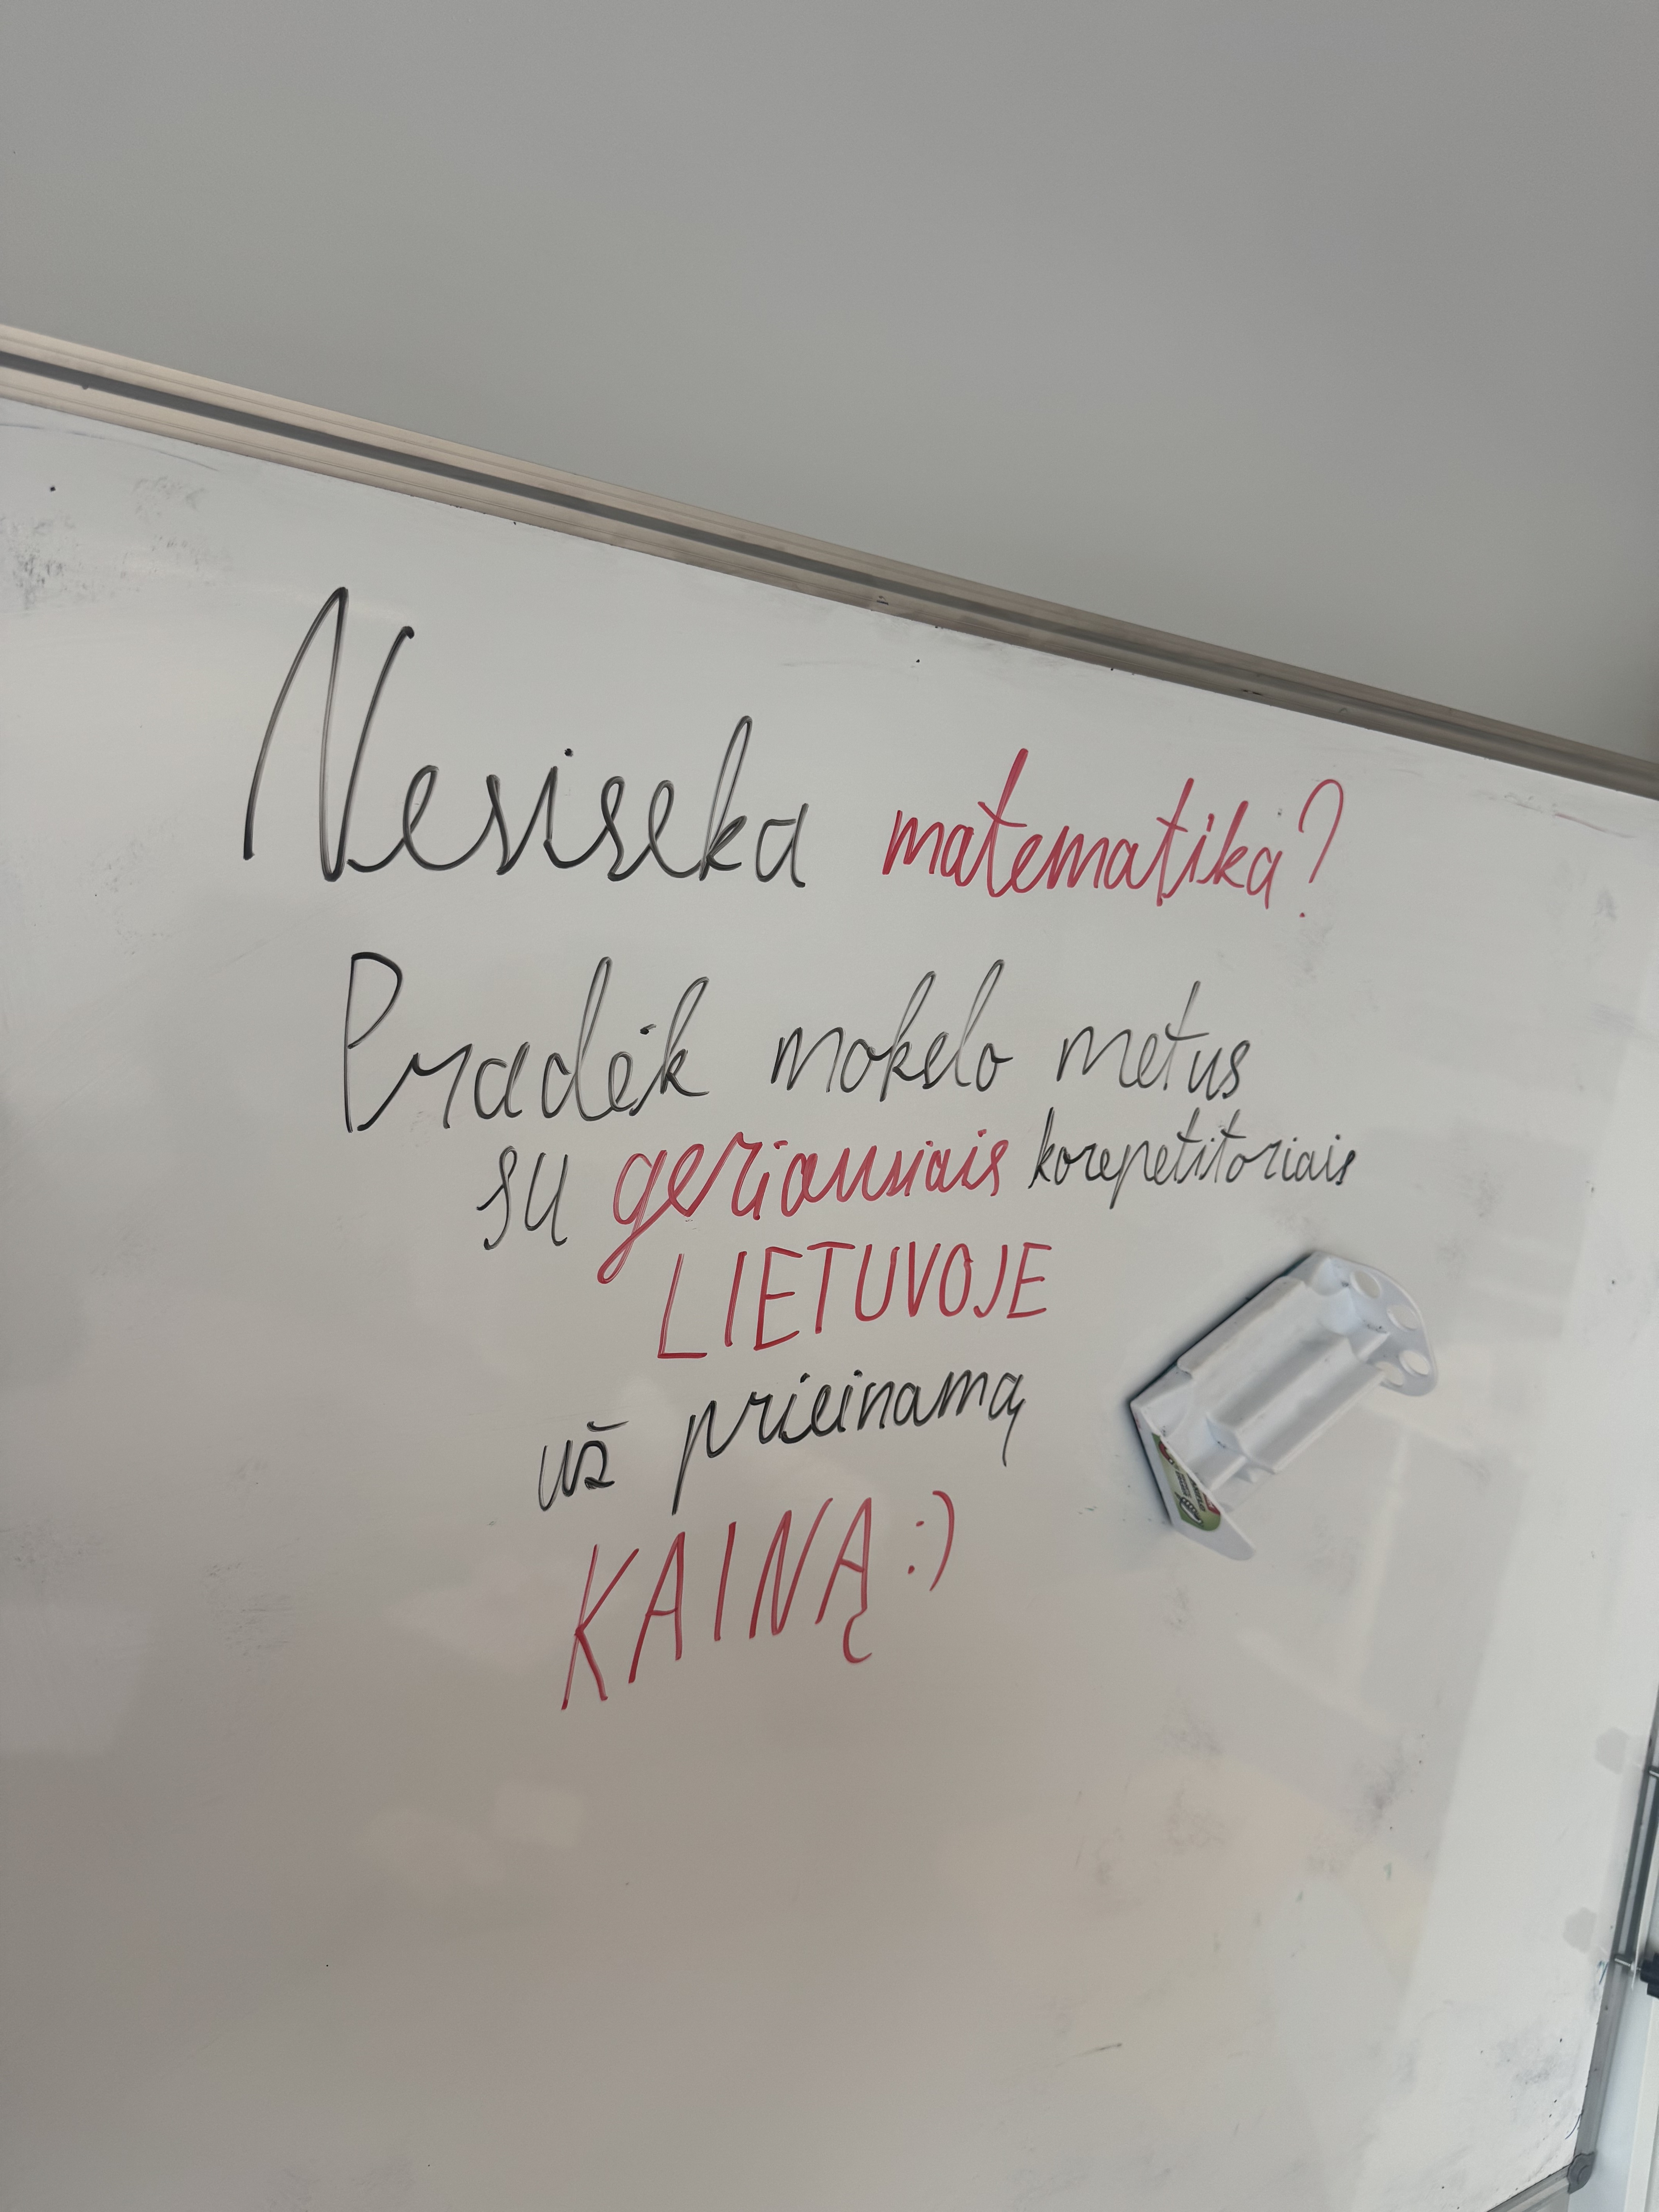 Nesiseka matematika?
Pradėk mokslo metus
su geriausiais korepetitoriais
LIETUVOJE
už prieinamą
KAINĄ :)